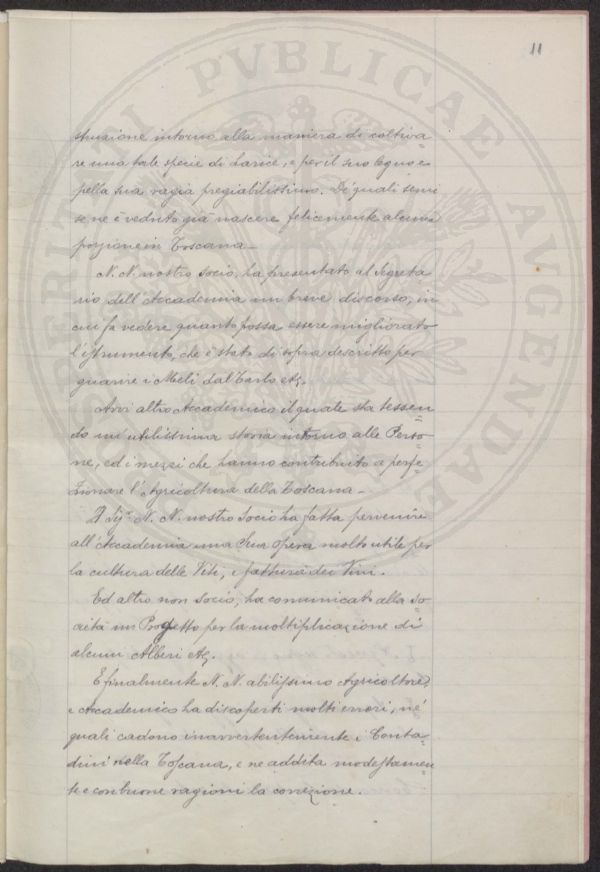 11
PROSPERITATI PVBLICAE AVGENDAE
struzione intorno alla maniera di coltiva
re una tale specie di Larice, e per il suo legno e
pella sua ragia pregiabilissimo. De' quali semi
se ne è veduto già nascere felicemente alcuna
porzione in Toscana_
N. N. nostro socio, ha presentato al Segreta
rio dell'Accademia un breve discorso, in
cui fa vedere quanto possa essere migliorato
l'istrumento, che è stato di sopra descritto per
guarire i Meli dal Tarlo &c.
Avvi altro Accademico il quale sta tessen
do un utilissima storia intorno alle Perso
ne, ed i mezzi che hanno contribuito a perfe
zionare l'Agricoltura della Toscana_
Il Sig.r N. N. nostro Socio ha fatta pervenire
all'Accademia una Sua opera molto utile per
la cultura delle Viti, e fattura dei Vini.
Ed altro non socio, ha comunicato alla So
cietà un Progetto per la moltiplicazione di
alcuni Alberi &c.
E finalmente N. N. abilissimo Agricoltore,
e Accademico ha discoperti molti errori, ne'
quali cadono inavvertentemente i Conta
dini nella Toscana, e ne addita modestamen
te e con buone ragioni la correzione.